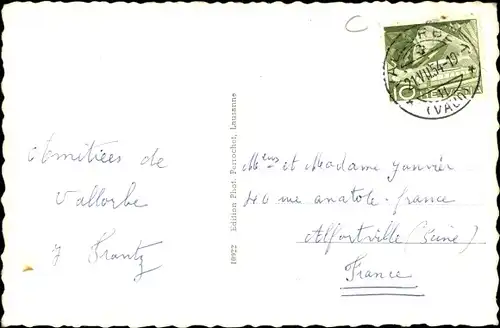 C
10
21.VII.54-19
(VAUD)
Amitiées de
Vallorbe
Frantz
10922 Edition Phot. Perrochet, Lausanne
Meus et Madame Janvier
40 rue anatole-france
Alfortville (Seine)
France